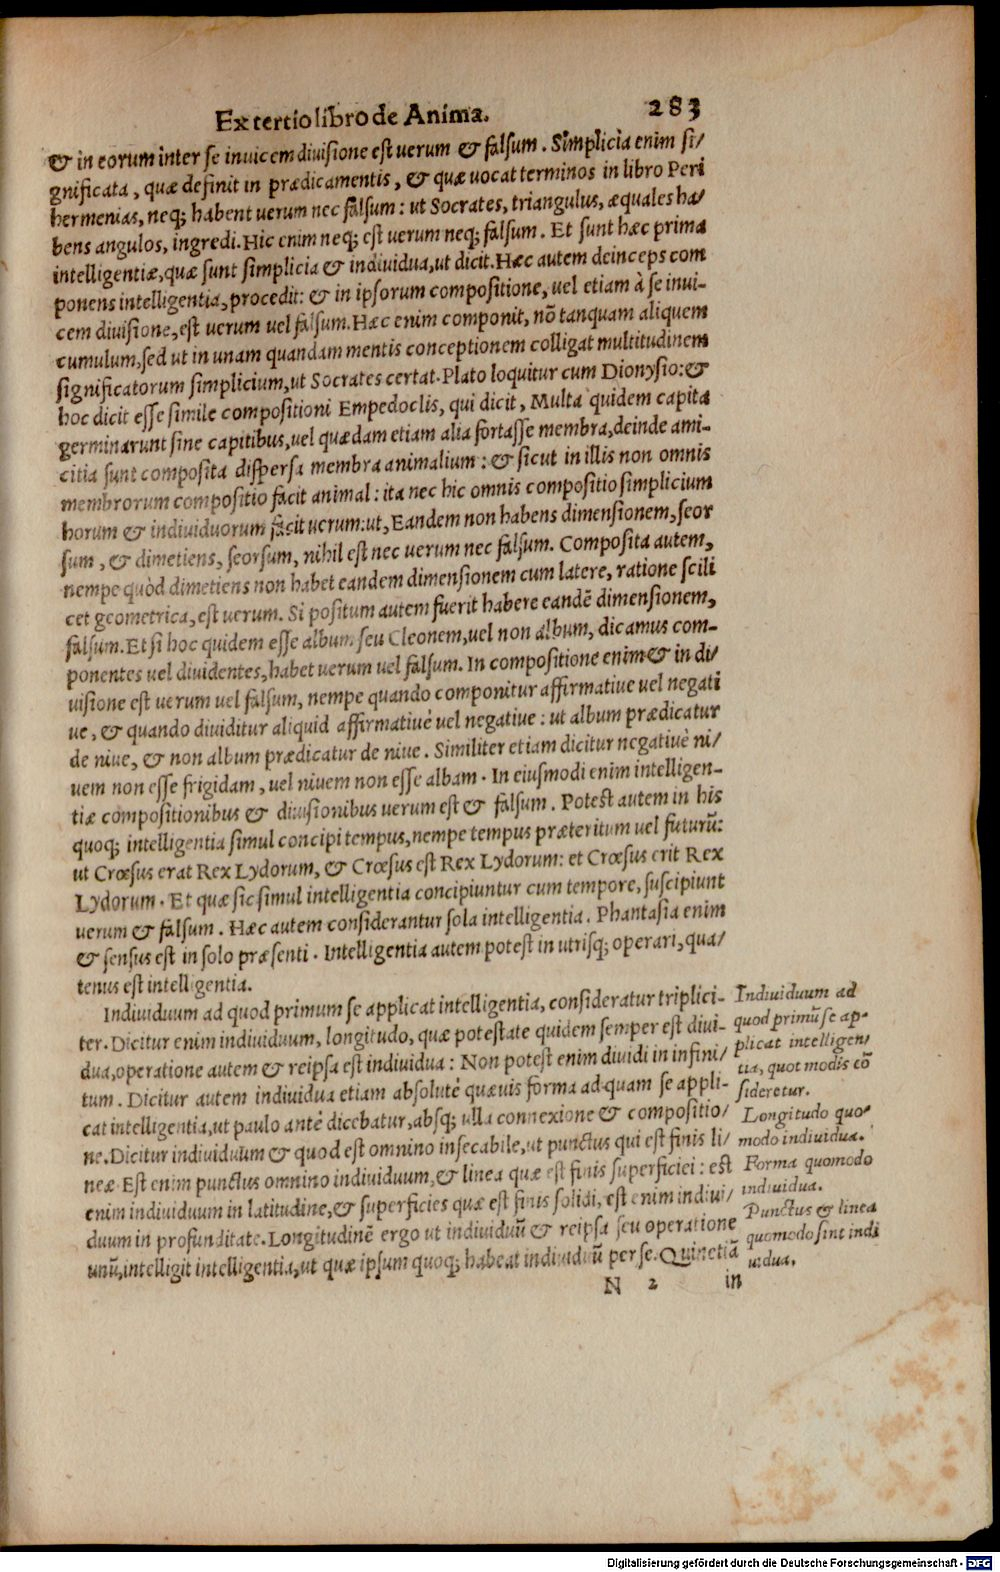 Ex tertio libro de Anima. 283
& in eorum inter se inuicem diuisione est uerum & falsum. Simplicia enim si/
gnificata, quæ definit in prædicamentis, & quæ uocat terminos in libro Peri
hermenias, neq; habent uerum nec falsum: ut Socrates, triangulus, æquales ha/
bens angulos, ingredi. Hic enim neq; est uerum neq; falsum. Et sunt hæc prima
intelligentiæ, quæ sunt simplicia & indiuidua, ut dicit. Hæc autem deinceps com
ponens intelligentia, procedit: & in ipsorum compositione, uel etiam à se inui-
cem diuisione, est uerum uel falsum. Hæc enim componit, nō tanquam aliquem
cumulum, sed ut in unam quandam mentis conceptionem colligat multitudinem
significatorum simplicium, ut Socrates certat. Plato loquitur cum Dionysio: &
hoc dicit esse simile compositioni Empedoclis, qui dicit, Multa quidem capita
germinarunt sine capitibus, uel quædam etiam alia fortasse membra, deinde ami-
citia sunt composita dispersa membra animalium: & sicut in illis non omnis
membrorum compositio facit animal: ita nec hic omnis compositio simplicium
horum & indiuiduorum facit uerum: ut, Eandem non habens dimensionem, seor
sum, & dimetiens, seorsum, nihil est nec uerum nec falsum. Composita autem,
nempe quòd dimetiens non habet eandem dimensionem cum latere, ratione scili
cet geometrica, est uerum. Si positum autem fuerit habere eandē dimensionem,
falsum. Et si hoc quidem esse album seu Cleonem, uel non album, dicamus com-
ponentes uel diuidentes, habet uerum uel falsum. In compositione enim & in di/
uisione est uerum uel falsum, nempe quando componitur affirmatiue uel negati
ue, & quando diuiditur aliquid affirmatiuè uel negatiue: ut album prædicatur
de niue, & non album prædicatur de niue. Similiter etiam dicitur negatiuè ni/
uem non esse frigidam, uel niuem non esse albam. In eiusmodi enim intelligen-
tiæ compositionibus & diuisionibus uerum est & falsum. Potest autem in his
quoq; intelligentia simul concipi tempus, nempe tempus præteritum uel futurū:
ut Crœsus erat Rex Lydorum, & Crœsus est Rex Lydorum: et Crœsus erit Rex
Lydorum. Et quæ sic simul intelligentia concipiuntur cum tempore, suscipiunt
uerum & falsum. Hæc autem considerantur sola intelligentia. Phantasia enim
& sensus est in solo præsenti. Intelligentia autem potest in utrisq; operari, qua/
tenus est intelligentia.
Indiuiduum ad quod primum se applicat intelligentia, consideratur triplici-
ter. Dicitur enim indiuiduum, longitudo, quæ potestate quidem semper est diui-
dua, operatione autem & reipsa est indiuidua: Non potest enim diuidi in infini/
tum. Dicitur autem indiuidua etiam absolutè quæuis forma ad quam se appli-
cat intelligentia, ut paulo antè dicebatur, absq; ulla connexione & compositio/
ne. Dicitur indiuiduum & quod est omnino insecabile, ut punctus qui est finis li/
neæ Est enim punctus omnino indiuiduum, & linea quæ est finis superficiei: est
enim indiuiduum in latitudine, & superficies quæ est finis solidi, est enim indiui/
duum in profunditate. Longitudinē ergo ut indiuiduū & reipsa seu operatione
unū, intelligit intelligentia, ut quæ ipsum quoq; habeat indiuiduū per se. Quinetiā
N 2 in
Indiuiduum ad
quod primū se ap-
plicat intelligen/
tia, quot modis cō
sideretur.
Longitudo quo-
modo indiuidua.
Forma quomodo
indiuidua.
Punctus & linea
quomodo sint indi
uidua.
Digitalisierung gefördert durch die Deutsche Forschungsgemeinschaft - DFG